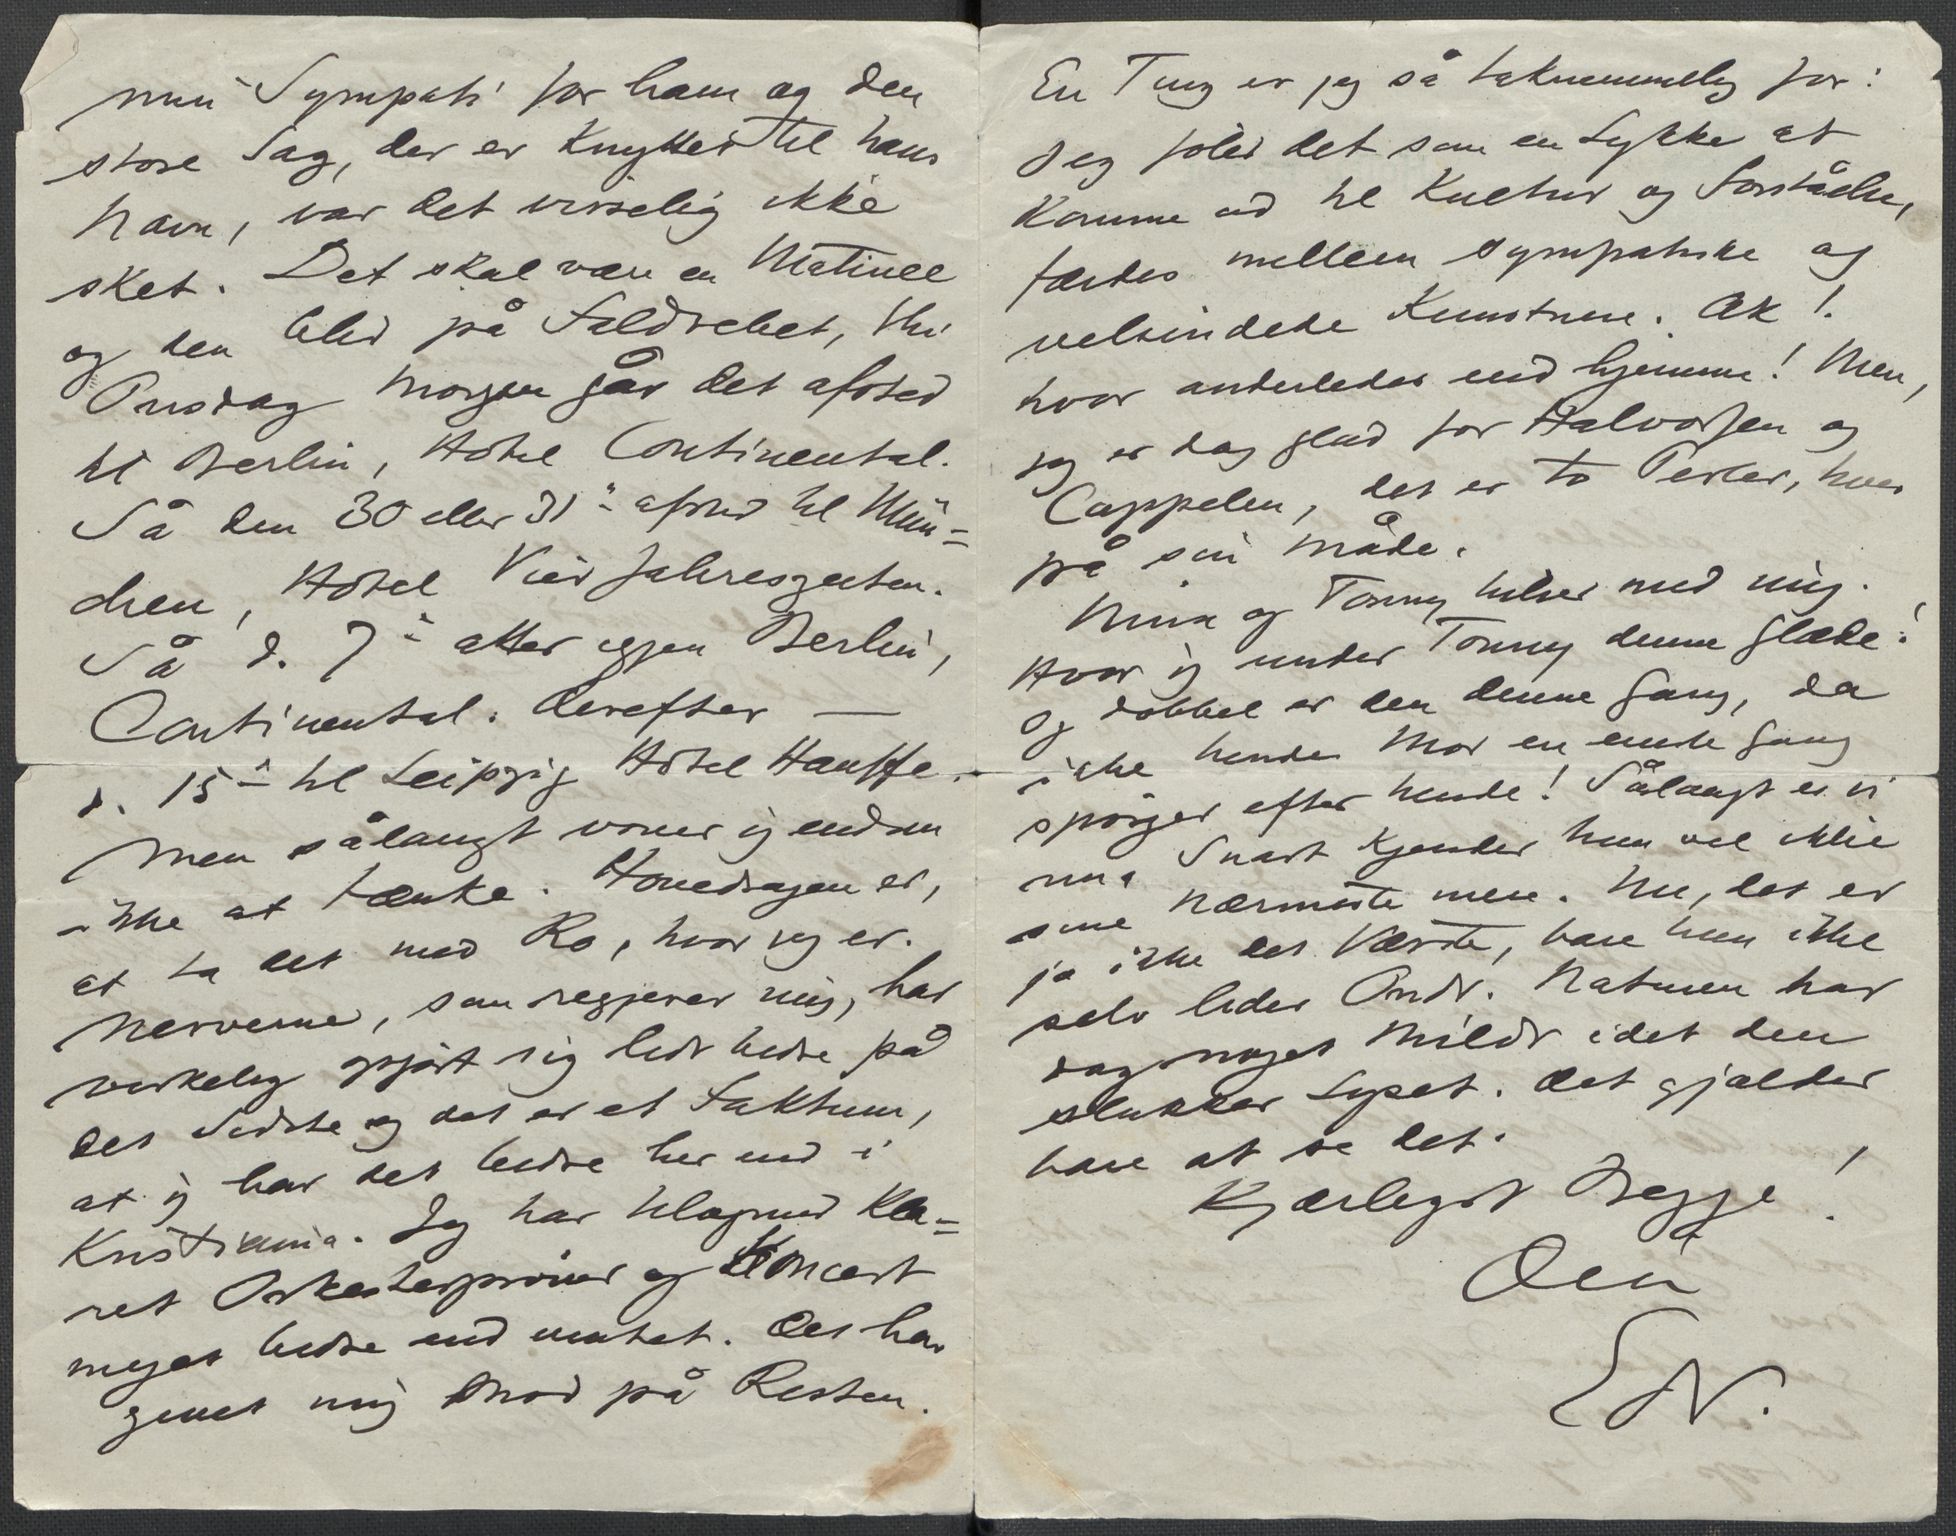 min Sympati for ham og den
store Sag, der er knyttet til hans
Navn, var det visselig ikke
sket. Det skal være en Matinee
og den blir på Faldrebet, thi
Onsdag Morgen går det afsted
til Berlin, Hotel Continental.
Så den 30 eller 31te afsted til Mün=
chen, Hotel Vier Jahreszeiten.
Så d. 7de atter igjen Berlin,
Continental. Derefter —
d. 15de til Leipzig Hotel Hauffe.
Men sålangt vover jeg endnu
ikke at tænke. Hovedsagen er,
at ta det med Ro, hvor jeg er.
Nerverne, som regjerer mig, har
virkelig gjort sig lidt bedre på
det Sidste og det er et Faktum,
at jeg har det bedre her end i
Kristiania. Jeg har tilogmed kla=
ret Orkesterprøver og Koncert
meget bedre end ventet. Det har
givet mig Mod på Resten.
En Ting er jeg så taknemmelig for:
Jeg føler det som en Lykke at
komme ud til Kultur og Forståelse,
færdes mellem sympatiske og
velsindede Kunstnere. Ak!
hvor anderledes end hjemme! Men,
jeg er dog glad for Halvorsen og
Cappelen, det er to Perler, hver
på sin Måde.
Nina og Tonny hilser med mig.
Hvor jeg under Tonny denne Glæde!
Og dobbel er den denne Gang, da
ikke hendes Mor en eneste Gang
spørger efter hende! Sålangt er vi
nu. Snart kjender hun vel ikke
sine Nærmeste mere. Nu, det er
jo ikke det Værste, bare hun ikke
selv lider Ondt. Naturen har
dog noget Mildt idet den
slukker Lyset. Det gjælder
bare at se det.
Kjærligst Begge!
Din
EG.